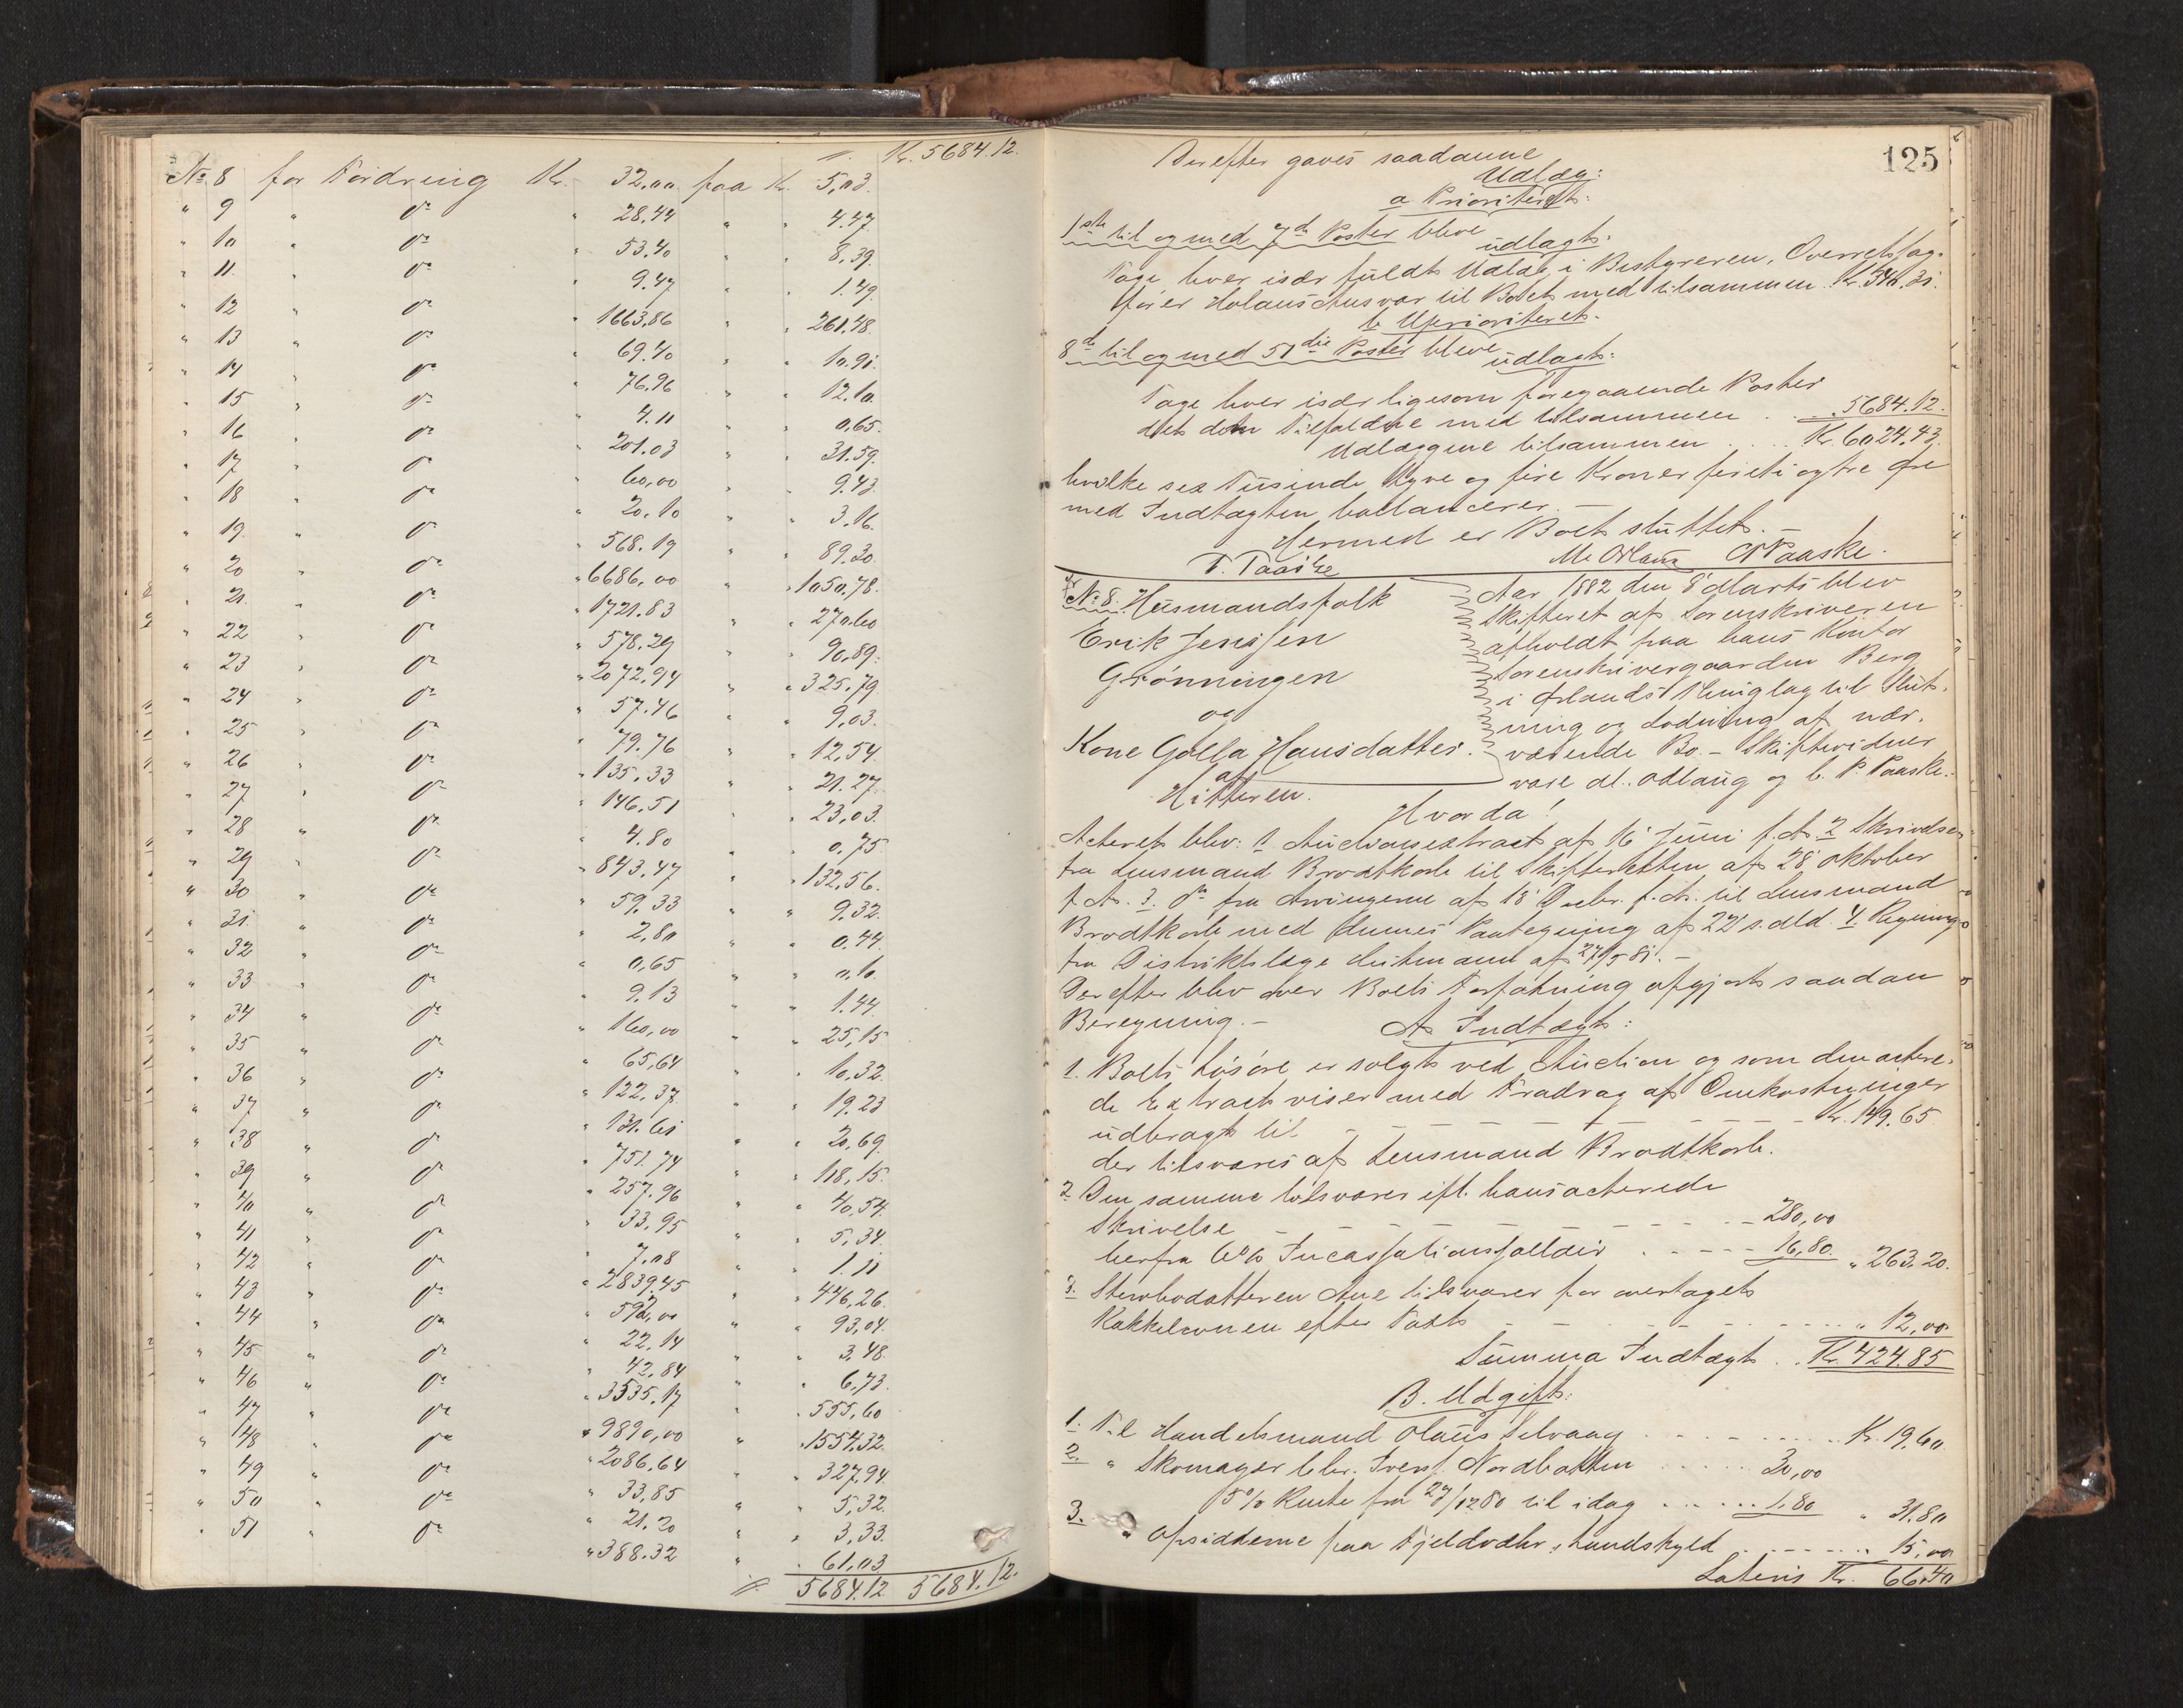 Kr. 5684.12.
No 8 for Fordring Kr. 32,00 paa Kr. 5,03.
" 9 " do " 28.44 " " 4.47.
" 10 " do " 53.40 " " 8,39.
" 11 " do " 9.47 " " 1.49.
" 12 " do " 1663,86 " " 261.48.
" 13 " do " 69.40 " " 10.91.
" 14 " do " 76.96 " " 12.10.
" 15 " do " 4.11 " " 0,65.
" 16 " do " 201.03 " " 31.59.
" 17 " do " 60,00 " " 9.43.
" 18 " do " 20.10 " " 3.16.
" 19 " do " 568.19 " " 89.30.
" 20 " do " 6686,00 " " 1050.78.
" 21 " do " 1721.83 " " 270.60
" 22 " do " 578.29 " " 90,89.
" 23 " do " 2072.94 " " 325.79
" 24 " do " 57.46 " " 9,03.
" 25 " do " 79.76 " " 12,54.
" 26 " do " 135.33 " " 21.27.
" 27 " do " 146.51 " " 23,03.
" 28 " do " 4.80 " " 0.75
" 29 " do " 843.47 " " 132,56.
" 30 " do " 59,33 " " 9,32.
" 31 " do " 2,80 " " 0.44.
" 32 " do " 0,65 " " 0.10.
" 33 " do " 9.13 " " 1.44.
" 34 " do " 160,00 " " 25,15
" 35 " do " 65,64 " " 10.32.
" 36 " do " 122,37 " " 19.23
" 37 " do " 131.61 " " 20,69.
" 38 " do " 751.74 " " 118,15.
" 39 " do " 257.96 " " 40,54.
" 40 " do " 33.95 " " 5,34.
" 41 " do " 7,08 " " 1.11
" 42 " do " 2839.45 " " 446,26.
" 43 " do " 592,00 " " 93,04.
" 44 " do " 22,14 " " 3,48.
" 45 " do " 42,84 " " 6,73.
" 46 " do " 3535.17 " " 555,60
" 47 " do " 9890,00 " " 1554.32.
" 48 " do " 2086.64 " " 327,94.
" 49 " do " 33,85 " " 5,32.
" 50 " do " 21.20 " " 3,33.
" 51 " do " 388.32 " " 61,03
5684.12 5684.12.
125
Derefter gaves saadanne
Udlæg:
a Prioriteret:
1ste til og med 7de Poster bleve
udlagt:
Tage hver især fuldt Udlæg i Bestyreren, Overretssag-
fører Holans Ansvar til Boet med tilsammen Kr. 340.31.
b Uprioriteret.
8de til og med 51de Poster bleve
udlagt:
Tage hver især ligesom foregaaende Poster
det dem Tilfaldne med tilsammen . . " 5684.12.
Udlæggene tilsammen . . . . Kr. 6024.43.
hvilke sex Tusinde tyve og fire Kroner firti og tre Øre
med Indtægten ballancerer. –
Hermed er Boet sluttet. –
M. Odlaug C P Paaske.
No 8. Husmandsfolk
Erik Jenssen
Grønningen
og
Kone Golla Hansdatter
af
Hitteren.
Aar 1882 den 8 Marts blev
Skifteret af Sorenskriveren
afholdt paa hans Kontor
Sorenskrivergaarden Berg
i Ørlands Thinglag til Slut-
ning og Lodning af nær-
værende Bo. – Skiftevidner
vare M. Odlaug og C. P. Paaske.
Hvorda!
Acteret blev: 1 Auctionsextract af 16 Juni f. A. 2 Skrivelse
fra Lensmand Brodtkorb til Skifteretten af 28 Oktober
f. A. 3. do fra Arvingerne af 18 Decbr. f. A. til Lensmand
Brodtkorb med dennes Paategning af 22 s. Md. 4. Regning
fra Distriktslæge af 27/5 81. –
Derefter blev over Boets Forfatning opgjort saadan
Beregning. – A Indtægt:
1. Boets Løsøre er solgt ved Auction og som den actere-
de Extract viser med Fradrag af Omkostninger
udbragt til – – – – – – Kr. 149.65.
der tilsvares af Lensmand Brodtkorb.
2 Den samme tilsvarer ifl. hans acterede
Skrivelse – – – – – – 280,00
herfra 6% Incassationssallair . . . – 16,80 " 263.20.
3. Sterbodatteren Ane tilsvarer for overtaget
Kakkelovnen efter Taxt – – – – – – " 12,00
Summa Indtægt . . Kr. 424.85
B. Udgift:
1. Til Handelsmand Olaus Selvaag . . . . . Kr. 19.60
2. " Skomager Chr. Iverss. Nordbotten . . . 30,00
5% Rente fra 27/12 80 til idag . . . . 1.80 " 31.80
3. " Opsidderne paa Fjeldvær, Landskyld . . . . " 15,00
Lateris Kr. 66.40